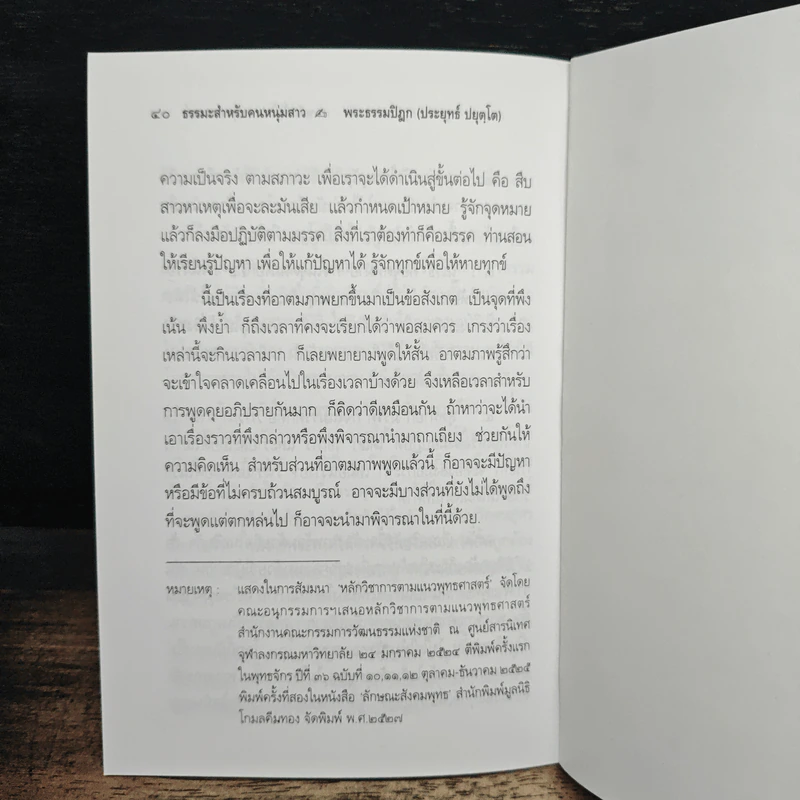 ๔๐ ธรรมะสำหรับคนหนุ่มสาว ✍ พระธรรมปิฎก (ประยุทธ์ ปยุตฺโต)
ความเป็นจริง ตามสภาวะ เพื่อเราจะได้ดำเนินสู่ขั้นต่อไป คือ สืบ
สาวหาเหตุเพื่อจะละมันเสีย แล้วกำหนดเป้าหมาย รู้จักจุดหมาย
แล้วก็ลงมือปฏิบัติตามมรรค สิ่งที่เราต้องทำก็คือมรรค ท่านสอน
ให้เรียนรู้ปัญหา เพื่อให้แก้ปัญหาได้ รู้จักทุกข์เพื่อให้หายทุกข์
นี้เป็นเรื่องที่อาตมภาพยกขึ้นมาเป็นข้อสังเกต เป็นจุดที่พึง
เน้น พึงย้ำ ก็ถึงเวลาที่คงจะเรียกได้ว่าพอสมควร เกรงว่าเรื่อง
เหล่านี้จะกินเวลามาก ก็เลยพยายามพูดให้สั้น อาตมภาพรู้สึกว่า
จะเข้าใจคลาดเคลื่อนไปในเรื่องเวลาบ้างด้วย จึงเหลือเวลาสำหรับ
การพูดคุยอภิปรายกันมาก ก็คิดว่าดีเหมือนกัน ถ้าหาว่าจะได้นำ
เอาเรื่องราวที่พึงกล่าวหรือพึงพิจารณานำมาถกเถียง ช่วยกันให้
ความคิดเห็น สำหรับส่วนที่อาตมภาพพูดแล้วนี้ ก็อาจจะมีปัญหา
หรือมีข้อที่ไม่ครบถ้วนสมบูรณ์ อาจจะมีบางส่วนที่ยังไม่ได้พูดถึง
ที่จะพูดแต่ตกหล่นไป ก็อาจจะนำมาพิจารณาในที่นี้ด้วย.
หมายเหตุ : แสดงในการสัมมนา 'หลักวิชาการตามแนวพุทธศาสตร์' จัดโดย
คณะอนุกรรมการฯเสนอหลักวิชาการตามแนวพุทธศาสตร์
สำนักงานคณะกรรมการวัฒนธรรมแห่งชาติ ณ ศูนย์สารนิเทศ
จุฬาลงกรณมหาวิทยาลัย ๒๔ มกราคม ๒๕๒๔ ตีพิมพ์ครั้งแรก
ในพุทธจักร ปีที่ ๓๖ ฉบับที่ ๑๐,๑๑,๑๒ ตุลาคม-ธันวาคม ๒๕๒๕
พิมพ์ครั้งที่สองในหนังสือ 'ลักษณะสังคมพุทธ' สำนักพิมพ์มูลนิธิ
โกมลคีมทอง จัดพิมพ์ พ.ศ.๒๕๒๗